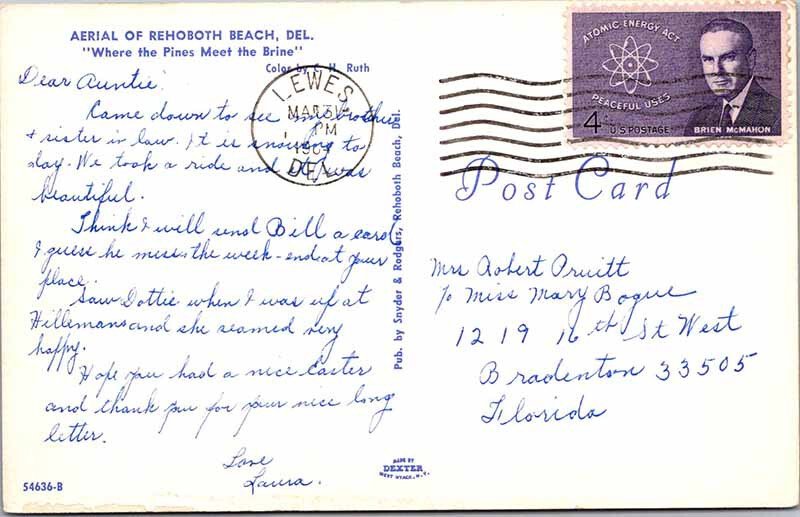 AERIAL OF REHOBOTH BEACH, DEL.
"Where the Pines Meet the Brine"
Color by C. H. Ruth
Dear Auntie,
Came down to see my brother
& sister in law. It is snowing to
day. We took a ride and it was
beautiful.
Think I will send Bill a card
I guess he misses the week-end at your
place.
Saw Dottie when I was up at
Hillemans and she seamed very
happy.
Hope you had a nice Easter
and thank you for your nice long
letter.
Love
Laura.
54636-B
Pub. by Snyder & Rodgers, Rehoboth Beach, Del.
MADE BY
DEXTER
WEST NYACK, N.Y.
LEWES
MAR 31
PM
1964
DEL
ATOMIC ENERGY ACT
PEACEFUL USES
4 U.S. POSTAGE
BRIEN McMAHON
Post Card
Mrs Robert Pruitt
℅ Miss Mary Bogue
1219 16th St West
Bradenton 33505
Florida